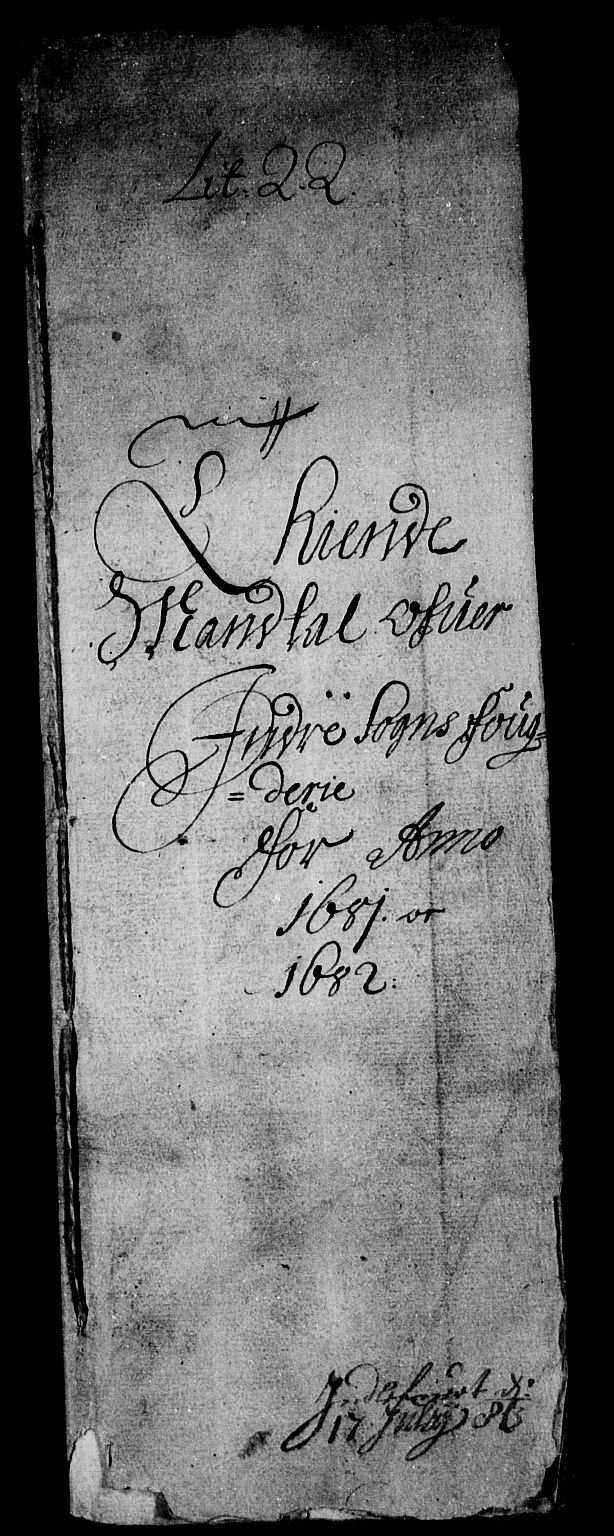 Lit. 2.2.
Thiende
Mandtal ofuer
Indre Sogns foug=
=derie
for Anno
1681. oc
1682.
Indefciert d:
17 July 86